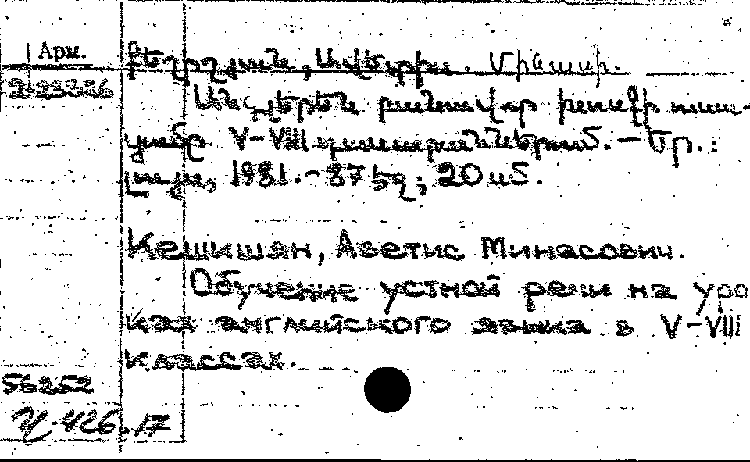 Арм.
Քեշիշյան, Ավետիս Մինասի.
2-23326
Անգլերեն բանավոր խոսքի ուսու-
ցումը V-VIII դասարաններում. – Եր.:
Լույս, 1981. - 87 էջ; 20 սմ.
Кешишян, Аветис Минасович.
Обучение устной речи на уро
ках английского языка в V-VIII
классах.
56252
426.17